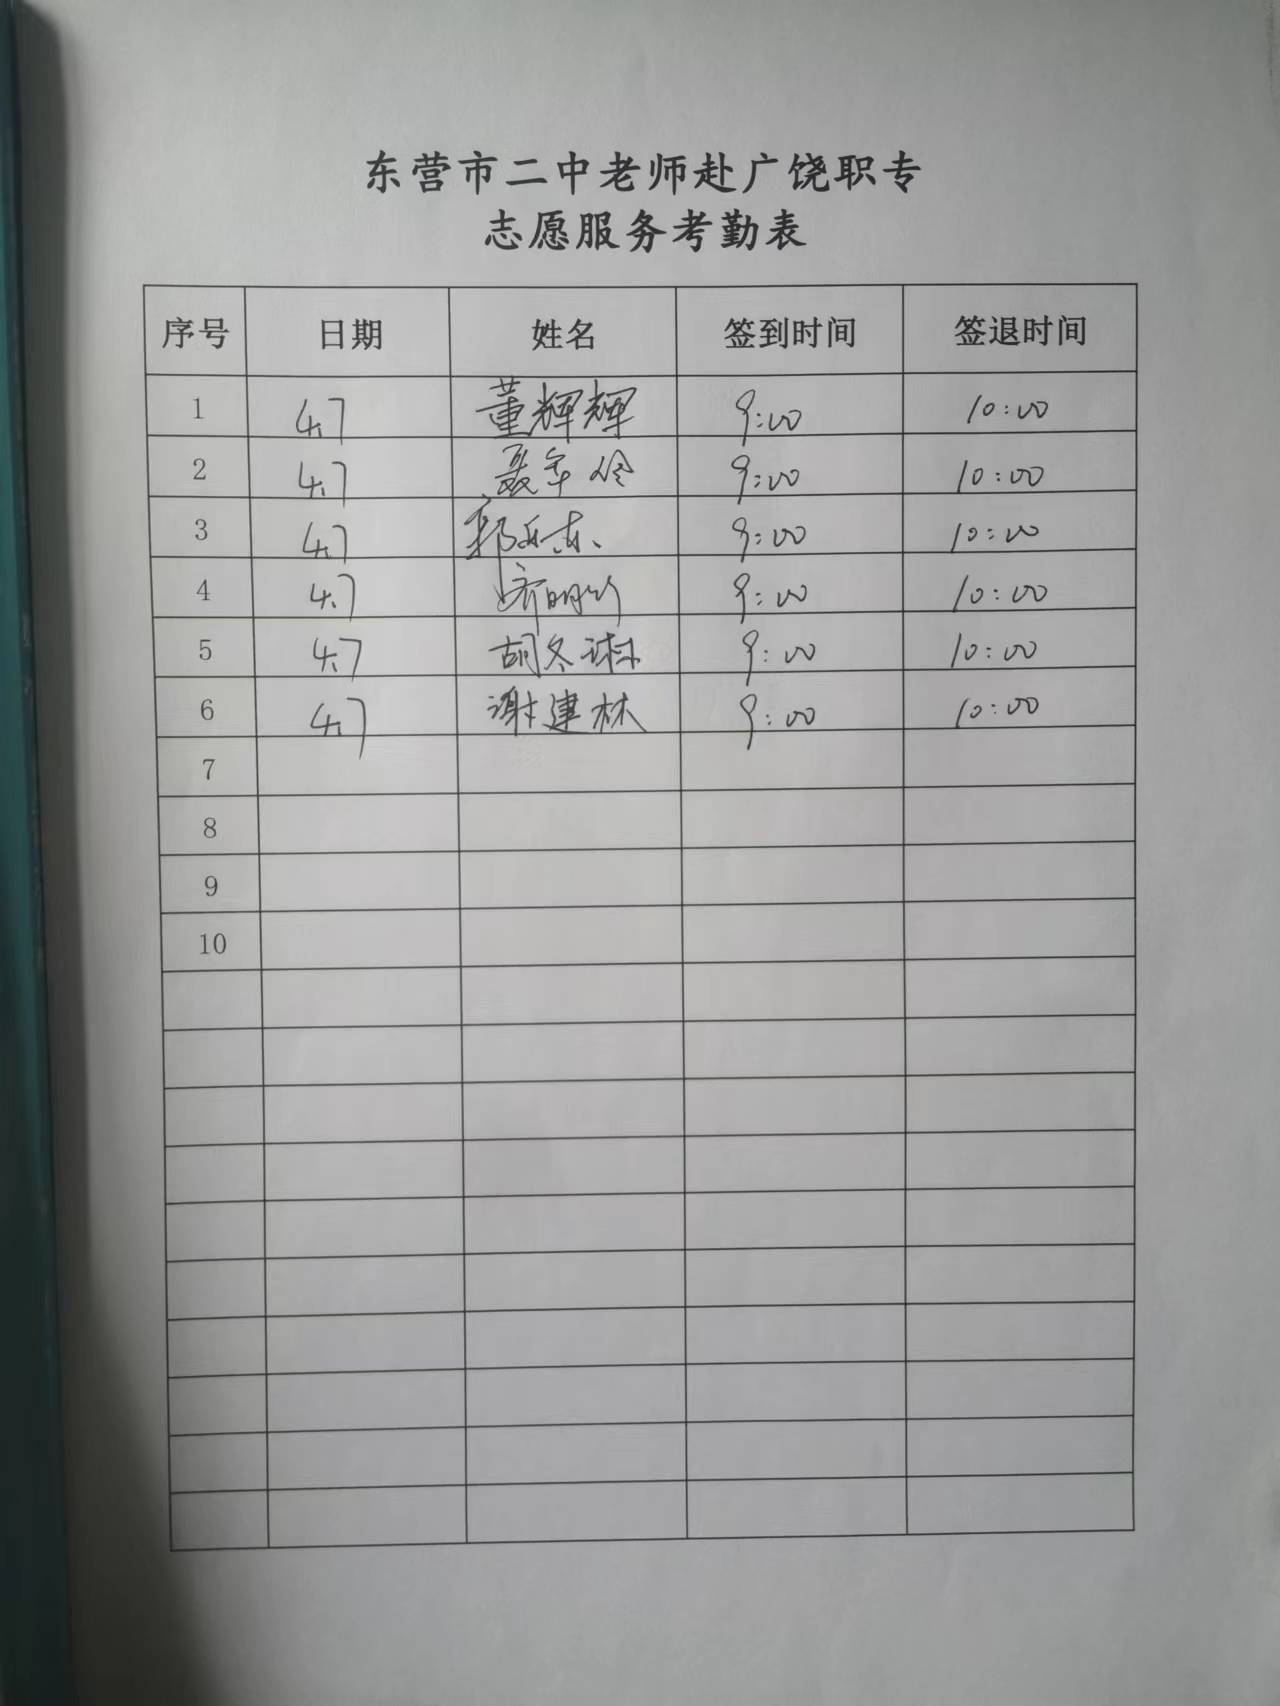 东营市二中老师赴广饶职专
志愿服务考勤表
序号 日期 姓名 签到时间 签退时间
1 4.7 董辉辉 9:00 10:00
2 4.7 9:00 10:00
3 4.7 9:00 10:00
4 4.7 9:00 10:00
5 4.7 胡冬琳 9:00 10:00
6 4.7 谢建林 9:00 10:00
7
8
9
10